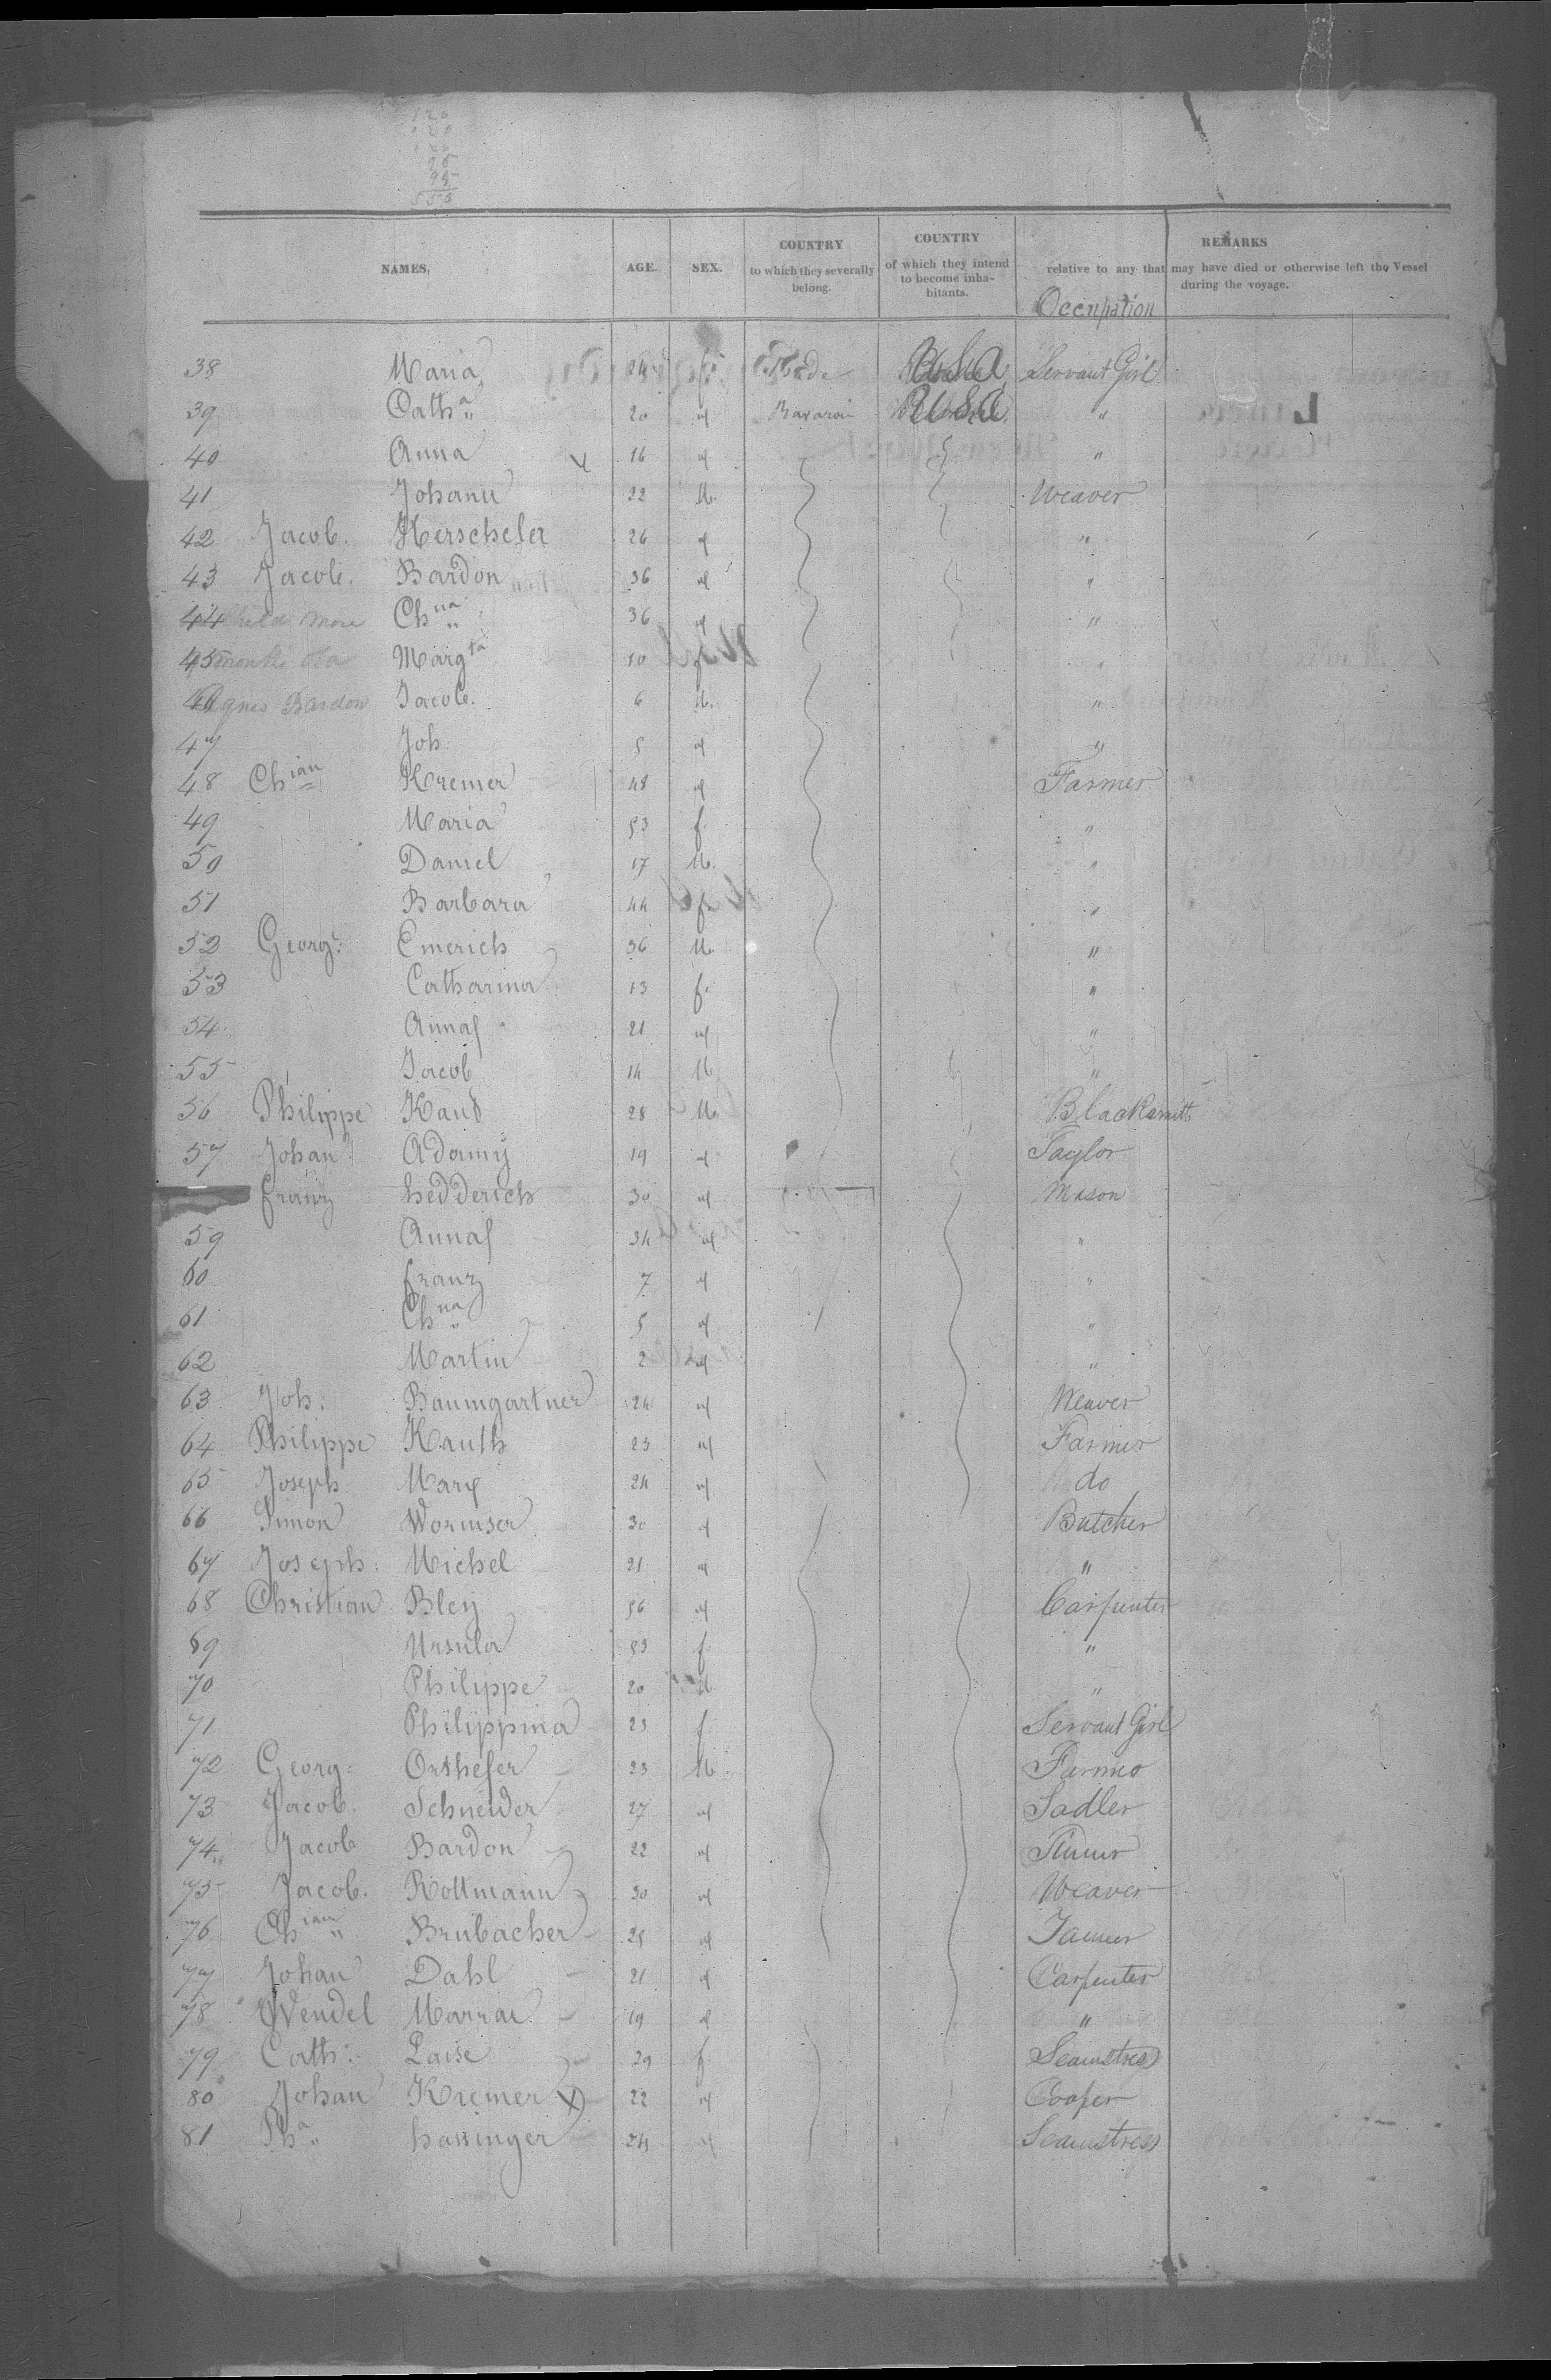 120
95
95
555
NAMES. AGE. SEX. COUNTRY to which they severally belong. COUNTRY of which they intend to become inhabitants. REMARKS relative to any that may have died or otherwise left the Vessel during the voyage.
Occupation
38 Maria 24 f. Bade USA Servant Girl
39 Cath a " 20 " Bavaroi USA "
40 Anna x 16 " "
41 Johann 22 M. Weaver
42 Jacob. Herscheler 26 " "
43 Jacob. Bardon 36 " "
44 Child more Ch na " 36 " "
45 months old Marg ta 10 f "
46 Agnes Bardon Jacob. 6 M. "
47 Joh: 5 " "
48 Ch ian Kremer 48 " Farmer
49 Maria 53 f. "
50 Daniel 17 M. "
51 Barbara 44 f. "
52 Georg: Emerich 36 M. "
53 Catharina 13 f. "
54 Anna 21 " "
55 Jacob 14 M "
56 Philippe Kauf 28 M. Blacksmith
57 Johan Adamy 19 " Taylor
franz hedderich 30 " Mason
59 Anna 34 " "
60 franz 7 " "
61 Ch na " 5 " "
62 Martin 2 " "
63 Joh: Baumgartner 24 " Weaver
64 Philippe Kauth 23 " Farmer
65 Joseph Marx 24 " do
66 Simon Wormser 30 " Butcher
67 Joseph: Michel 21 " "
68 Christian Bley 56 " Carpenter
69 Ursula 53 f "
70 Philippe 20 M "
71 Philippina 23 f Servant Girl
72 Georg: Orthefer 23 M. Farmer
73 Jacob. Schneider 27 " Sadler
74 Jacob Bardon 22 "
75 Jacob. Rottmann 30 " Weaver
76 Ch ian " Brubacher 25 " Tanner
77 Johan Dahl 21 " Carpenter
78 Wendel 19 " "
79 Cath: Laise 29 f. Seamstress
80 Johan Kremer x 22 " Cooper
81 Ph a " hassinger 24 " Seamstress